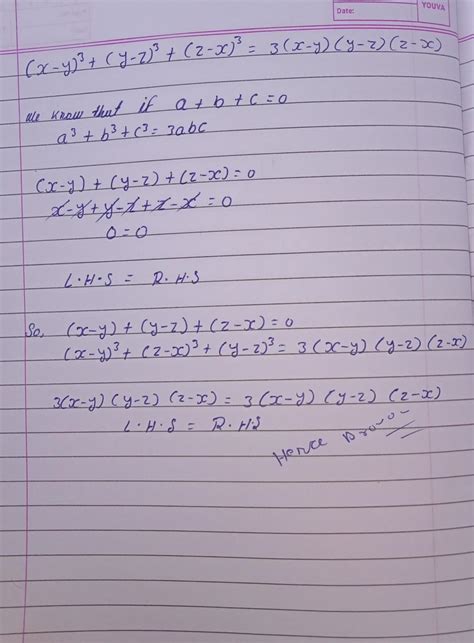 Date:
YOUVA
(x-y)³ + (y-z)³ + (z-x)³ = 3(x-y)(y-z)(z-x)
We know that if a+b+c=0
a³+b³+c³=3abc
(x-y)+(y-z)+(z-x)=0
x-y+y-z+z-x=0
0=0
L.H.S = R.H.S
So, (x-y)+(y-z)+(z-x)=0
(x-y)³+(z-x)³+(y-z)³= 3(x-y)(y-z)(z-x)
3(x-y)(y-z)(z-x) = 3(x-y)(y-z)(z-x)
L.H.S = R.HS
Hence